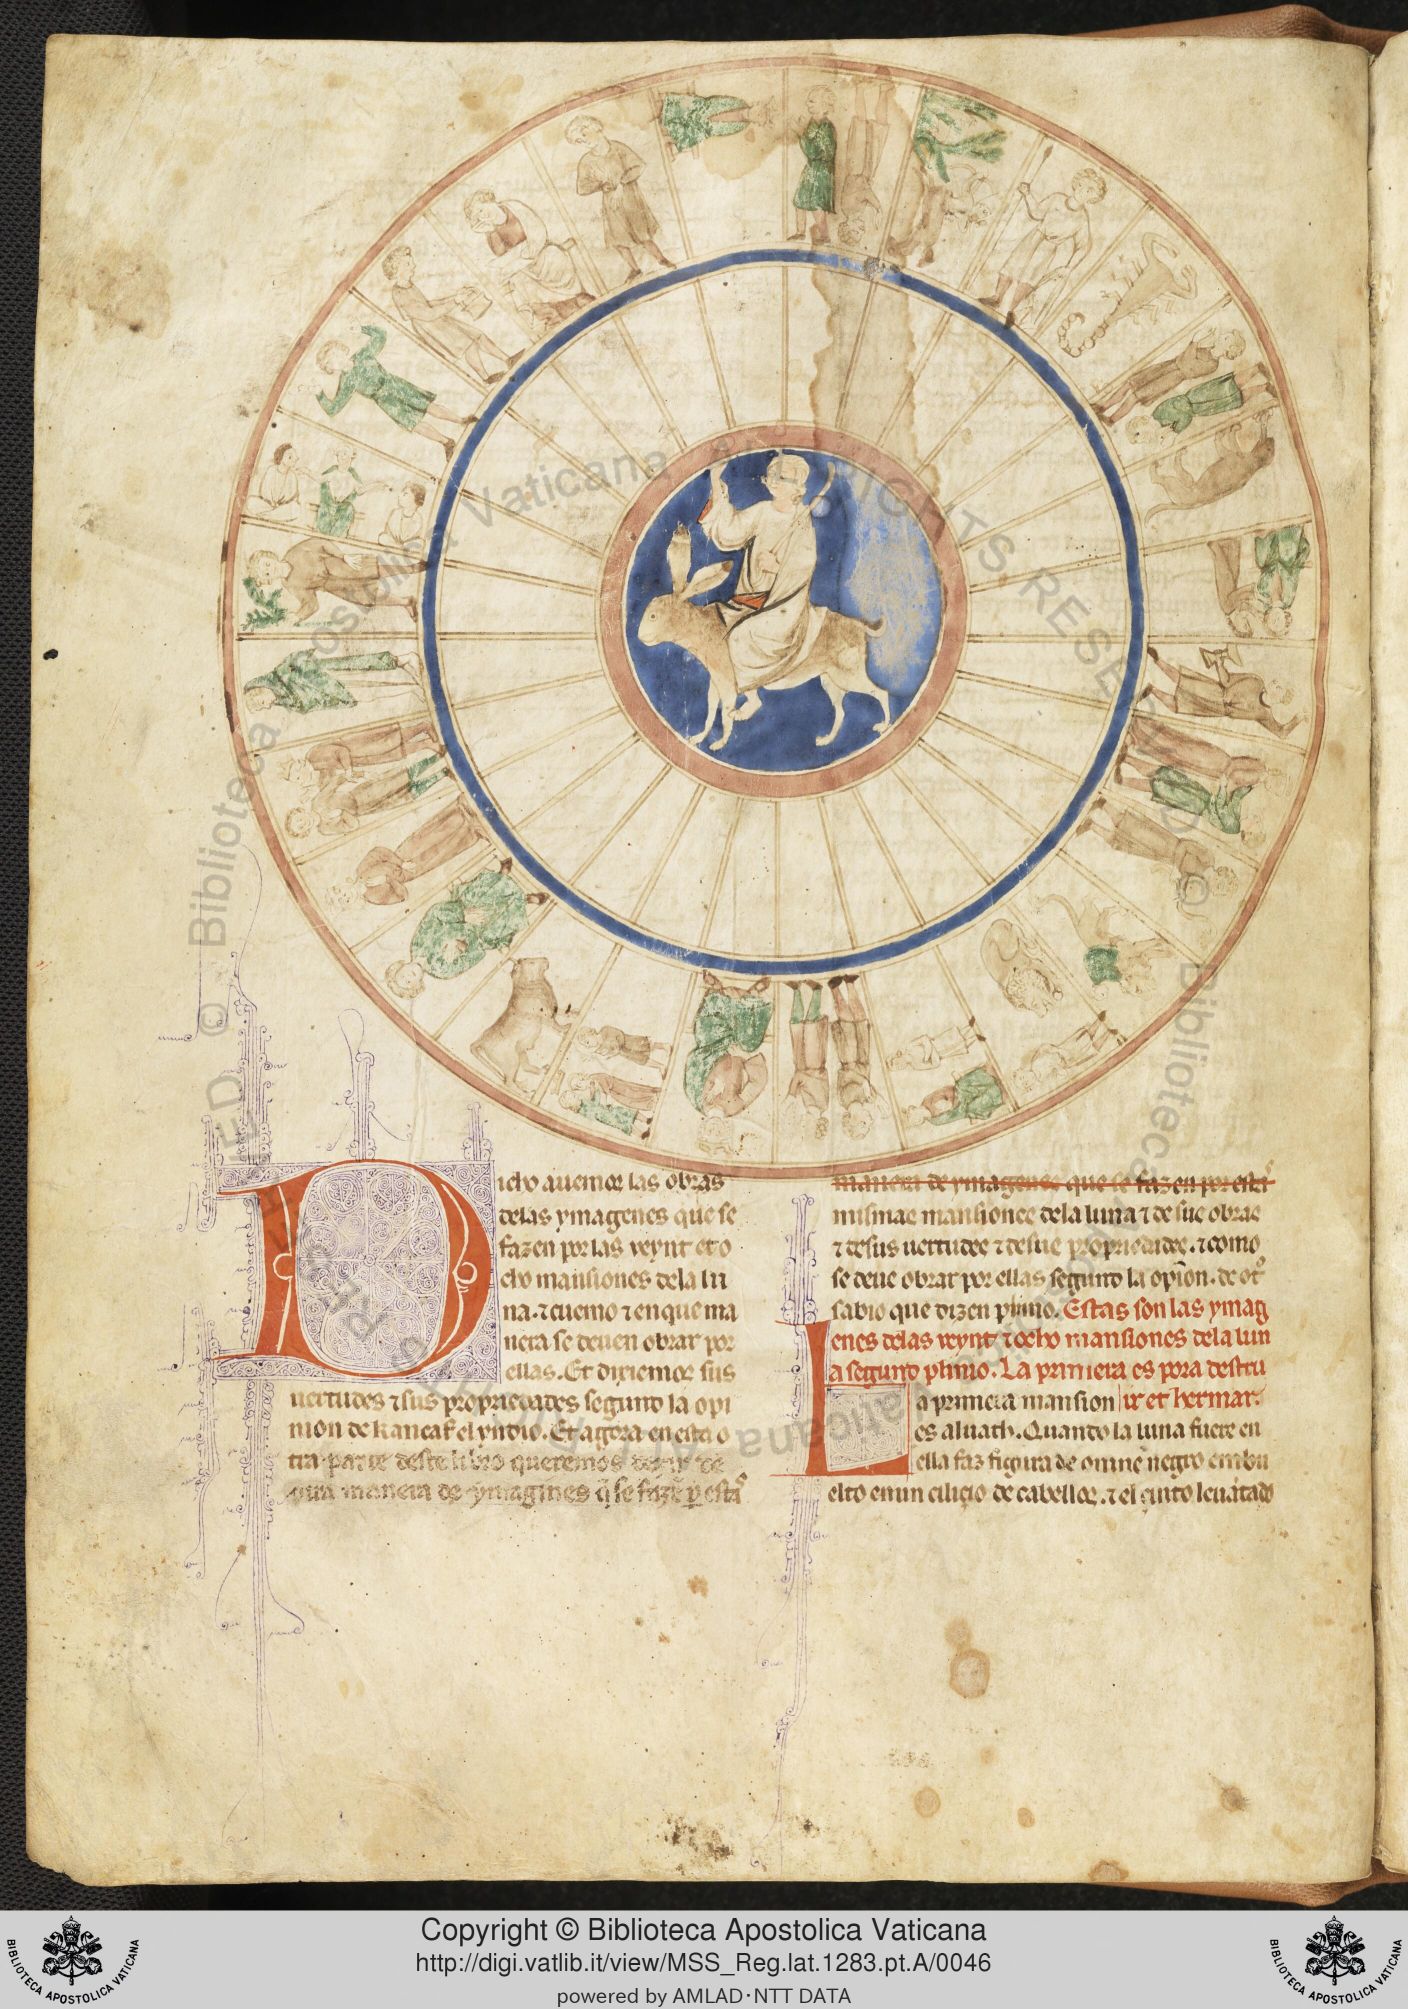 icho auemos las obras
delas ymagenes que se
fazen por las veynt et o
cho mansiones dela lu
na. ⁊ cuemo ⁊ en que ma
nera se deuen obrar por
ellas. Et dixiemos sus
uertudes ⁊ sus propriedades segund la opi
nion de kancaf el yndio. Et agora en esta o
tra parte deste libro queremos dezir de
otra manera de ymagines q̃ se fazẽ por estas
manera de ymagenes que se fazen por estas
mismas mansiones dela luna ⁊ de sus obras
⁊ de sus uertudes ⁊ de sus propriedades. ⁊ como
se deue obrar por ellas segund la opiõn. de otro
sabio que dizen plinio. Estas son las ymag
enes delas veynt ⁊ ocho mansiones dela lun
a segund plinio. La primera es pora destru
a primera mansion ir et hermar.
es aluath. Quando la luna fuere en
ella faz figura de omne negro enbu
elto en un cilicio de cabellos. ⁊ el cinto leuãtado
Copyright © Biblioteca Apostolica Vaticana
http://digi.vatlib.it/view/MSS_Reg.lat.1283.pt.A/0046
powered by AMLAD·NTT DATA
BIBLIOTECA APOSTOLICA VATICANA
BIBLIOTECA APOSTOLICA VATICANA
© Biblioteca Apostolica Vaticana ALL RIGHTS RESERVED